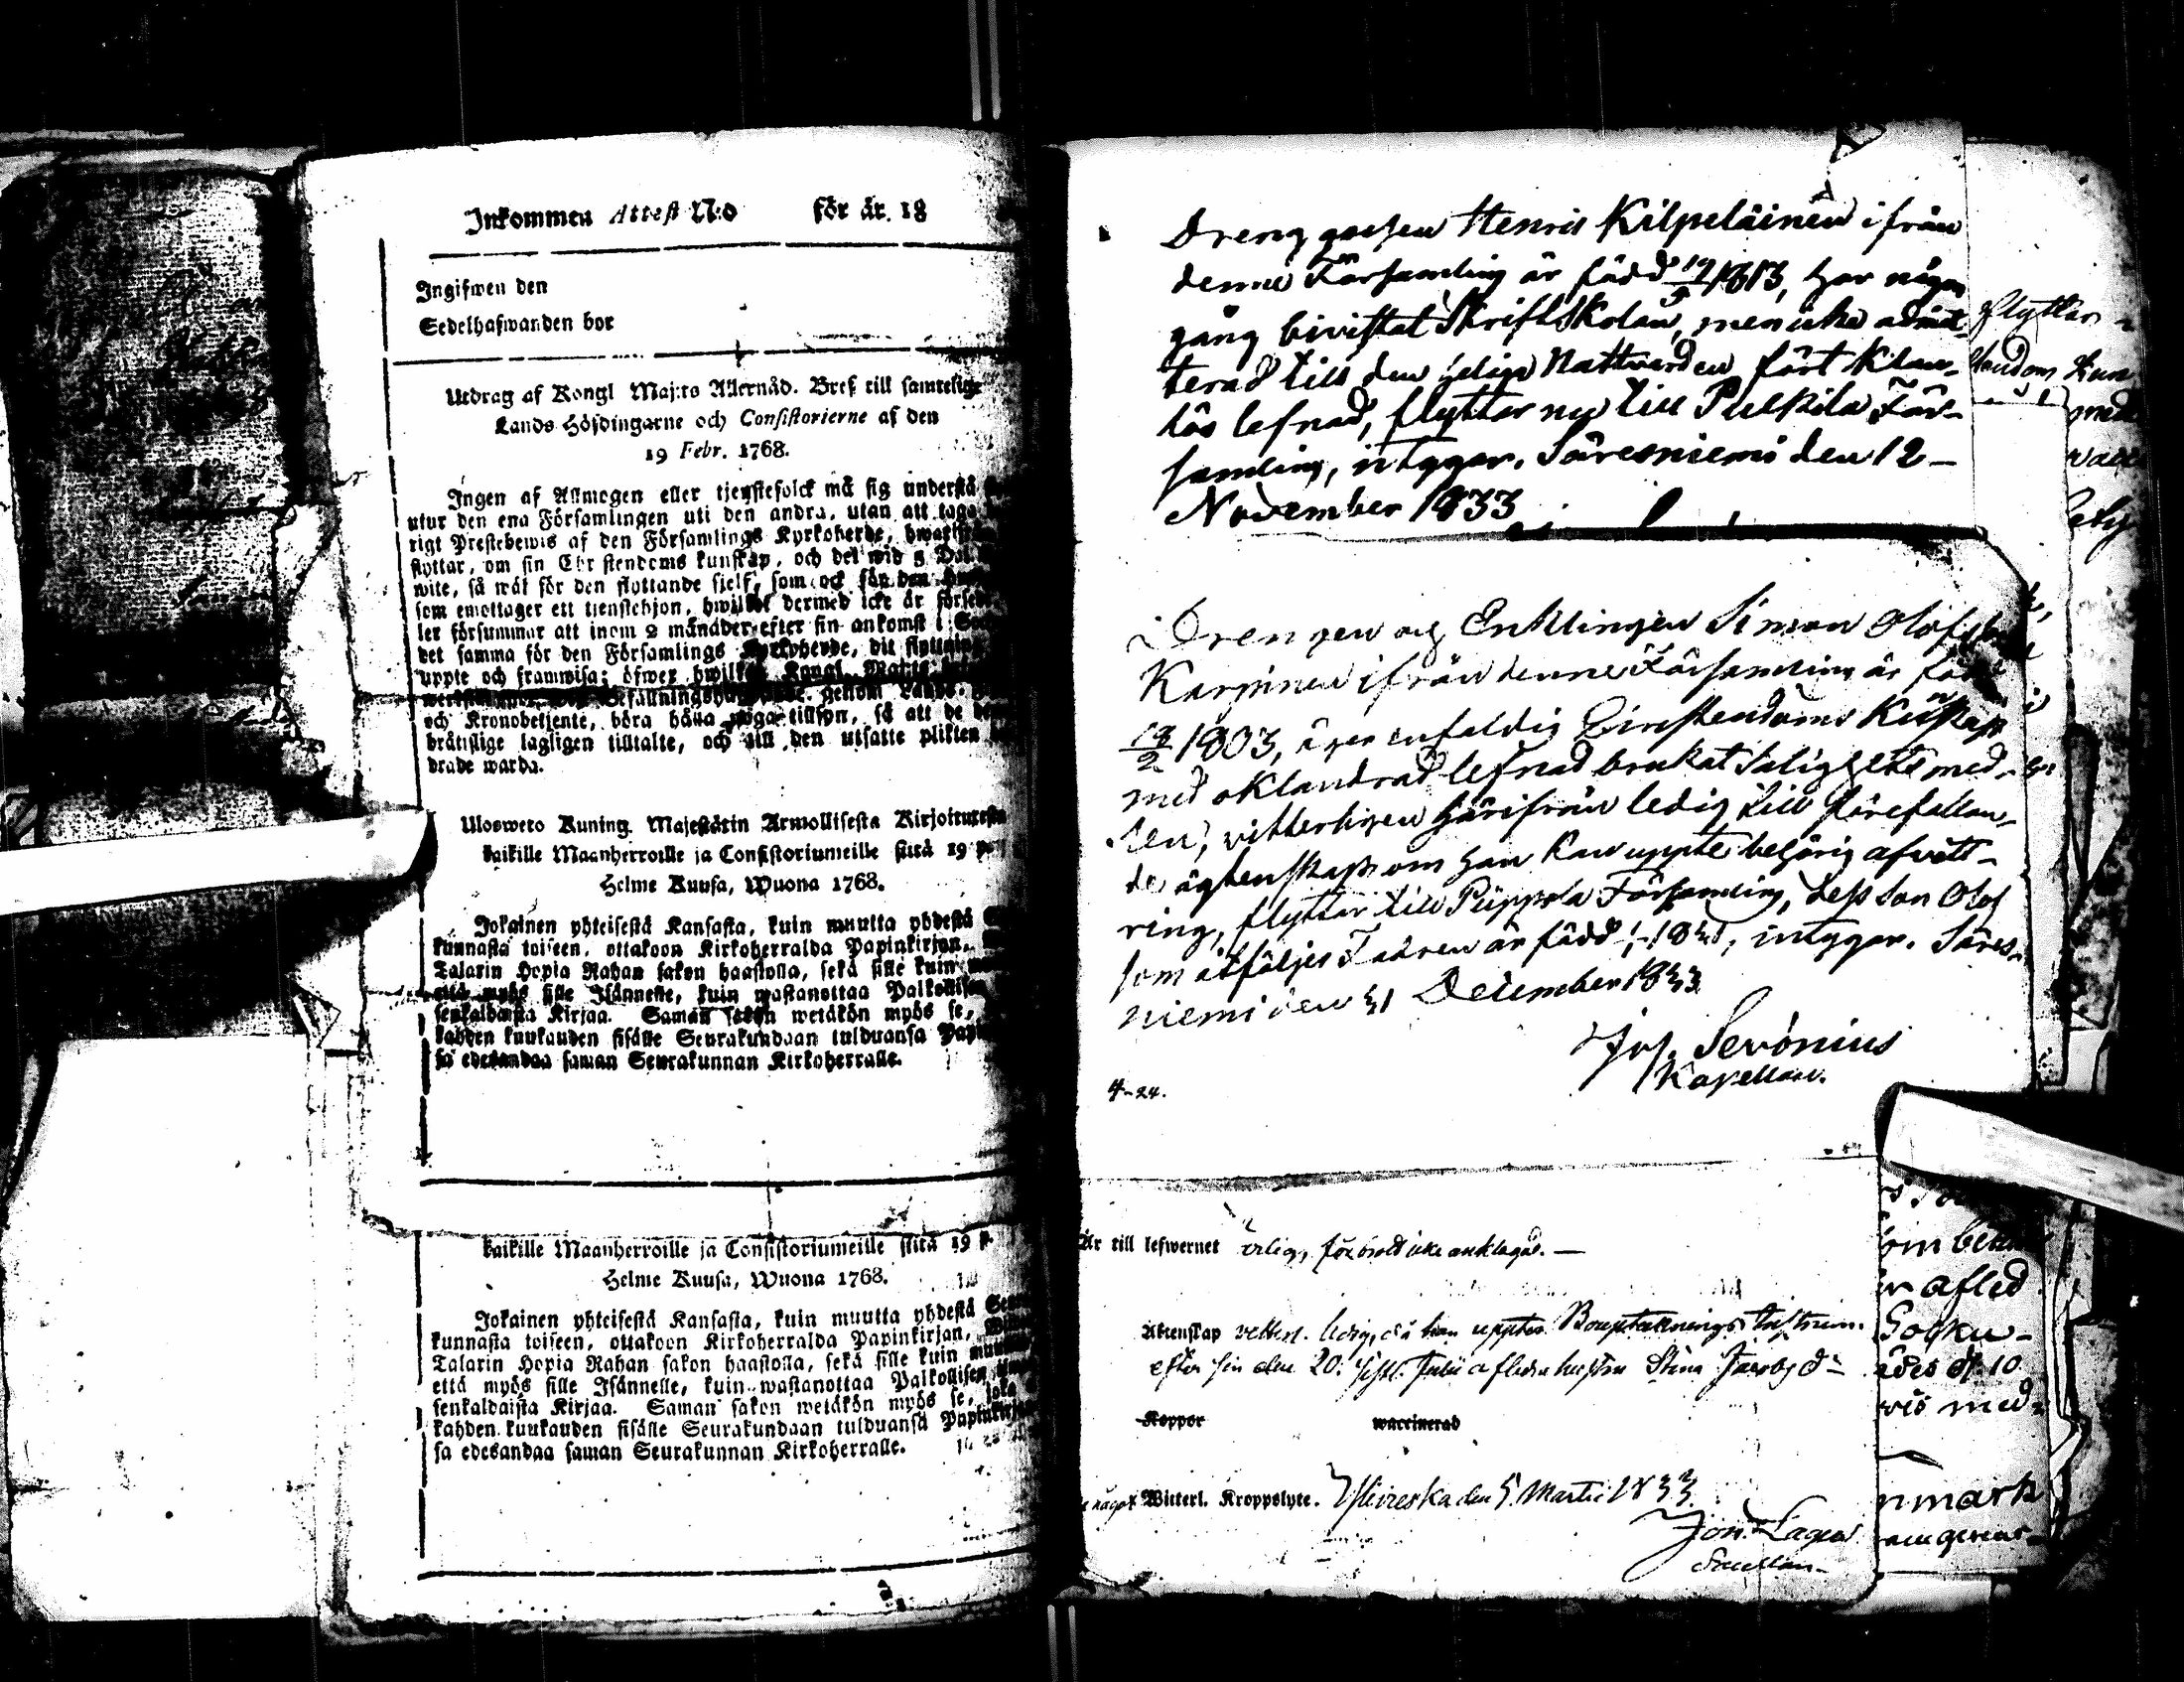 Inkommen Attest N:o för år. 18
Ingifwen den
Sedelhafwanden bor
Utdrag af Kongl Maj:ts Allernåd. Bref till samtelige
Lands Höfdingarne och Consistorierne af den
19 Febr. 1768.
Ingen af Allmogen eller tjenstefolck må sig understå
utur den ena Församlingen uti den andra, utan att taga
rigt Prestebewis af den Församlings Kyrkoherde,
flyttar, om sin Christendoms kunskap, och det wid 5
wite, så wäl för den flyttande sielf, som ock för den
som emottager ett tienstehjon, hwilket dermed icke är
ler försummar att inom 2 månader efter sin ankomst i
det samma för den Församlings Kyrkoherde, dit
uppte och framwisa; öfwer hwilket Kongl. Maj:ts
genom Lands
och Kronobetjente, böra hålla noga tillsyn, så att de
brätslige lagligen tilltalte, och till den utsatte plikten
drade warda.
Uloswero Kuning. Majestätin Armollisesta Kirjoituxesta
kaikille Maanherroille ja Consistoriumeille siitä 19 p.
Helme Kuusa, Wuona 1768.
Jokainen yhteisestä Kansasta, kuin muutta yhdestä
kunnasta toiseen, ottakoon Kirkoherralda Papinkirjan,
Talarin Hopia Rahan sakon haastolla, sekä sille kuin
että myös sille Isännelle, kuin wastanottaa Palkollisen
senkaldaista Kirjaa. Saman sakon wetäkön myös se,
kahden kuukauden sisälle Seurakundaan tulduansa
sa edesandaa saman Seurakunnan Kirkoherralle.
kaikille Maanherroille ja Consistoriumeille siitä 19 p.
Helme Kuusa, Wuona 1768.
Jokainen yhteisestä Kansasta, kuin muutta yhdestä
kunnasta toiseen, ottakoon Kirkoherralda Papinkirjan,
Talarin Hopia Rahan sakon haastolla, sekä sille kuin
että myös sille Isännelle, kuin wastanottaa Palkollisen
senkaldaista Kirjaa. Saman sakon wetäkön myös se, joka
kahden kuukauden sisälle Seurakundaan tulduansa
sa edesandaa saman Seurakunnan Kirkoherralle.
Dreng gossen Henric Kilpeläinen ifrån
denne Församling är född 19/1813, har någon
gång bivistat Skriftskolan, men icke admit-
terad till den heliga Nattvarden fört klan-
lös lefnad, flyttar nu till Pulkila För-
samling, intygar. Säresniemi den 12
November 1833
Drengen och Enklingen Simon Olofsson
Karpinen ifrån denne Församling är född
18/2 1803, äger enfaldig Christendoms Kunskap
med oklandrad lefnad brukat Salighets med-
len, vitterligen härifrån ledig till förefallan-
de ägtenskap om han kan uppte behörig afvitt-
ring, flyttar till Pippola Församling, dess son Olof
som åtföljer Fadren är född intygar. Säres-
niemi den 31 December 1833
Jos. Serónius
Kapellan.
4-24.
Är till lefwernet ärlig, för brott icke anklagad.
Äktenskap vetterl. ledig, då han uppter Bouptecknings Instrum.
efter sin den 20. sistl. Julii aflidna hustru Stina Jacobsd:r
Koppor waccinerad
Witterl. Kroppslyte. Ylivieska den 5 Martii 1833
Jon. Lagus
flyttar
afled
Socku-
d. 10
med